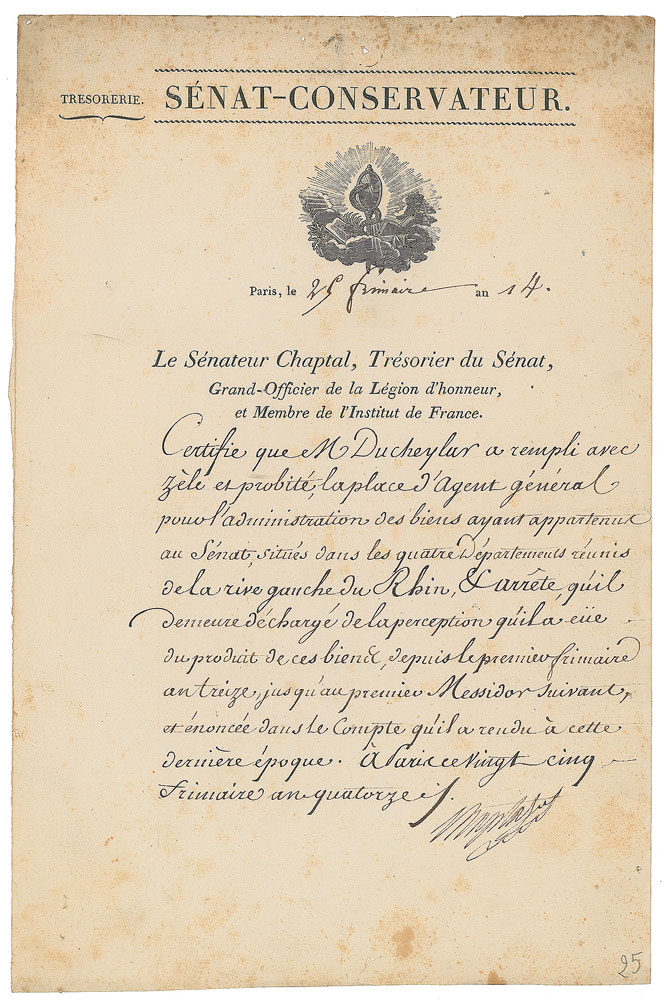 TRESORERIE. SÉNAT-CONSERVATEUR.
Paris, le 25 frimaire an 14.
Le Sénateur Chaptal, Trésorier du Sénat,
Grand-Officier de la Légion d'honneur,
et Membre de l'Institut de France.
Certifie que M Ducheylar a rempli avec
zèle et probité, la place d'Agent général
pour l'administration des biens ayant appartenu
au Sénat, situés dans les quatre Départements réunis
de la rive gauche du Rhin, & arrête, qu'il
demeure déchargé de la perception qu'il a eüe
du produit de ces biens, depuis le premier frimaire
an treize, jusqu'au premier Messidor suivant,
et énoncée dans le Compte qu'il a rendu à cette
dernière époque. À Paris ce vingt cinq
frimaire an quatorze
25